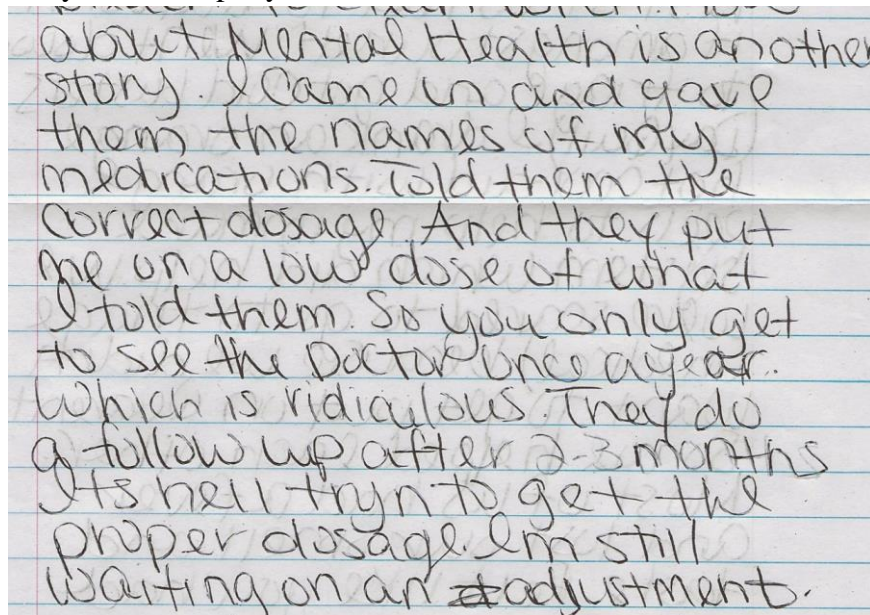 about Mental Health is another
story. I came in and gave
them the names of my
medications. Told them the
correct dosage. And they put
me on a low dose of what
I told them. So you only get
to see the Doctor once a year.
Which is ridiculous. They do
a follow up after 2-3 months
Its hell tryn to get the
proper dosage. Im still
waiting on an adjustment.